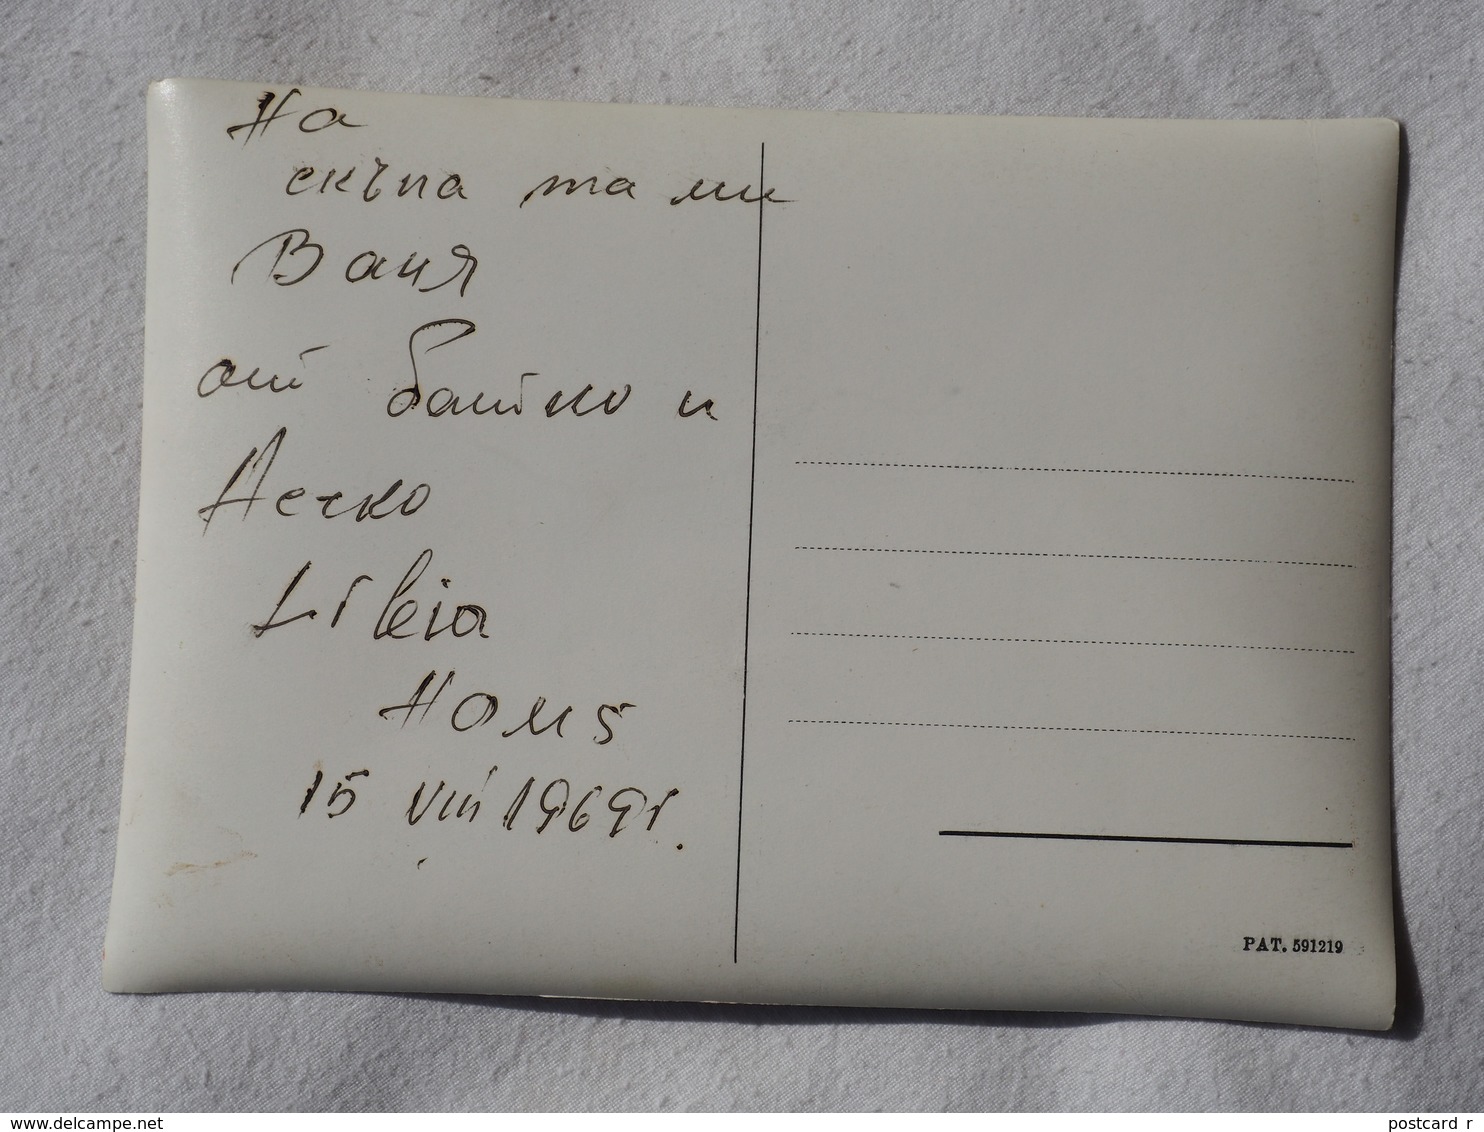 На
скъпа та ми
Ваня
от батко и
Лечко
Libia
Homs
15 VIII 1969г.
PAT. 591219
www.delcampe.net
postcard_r